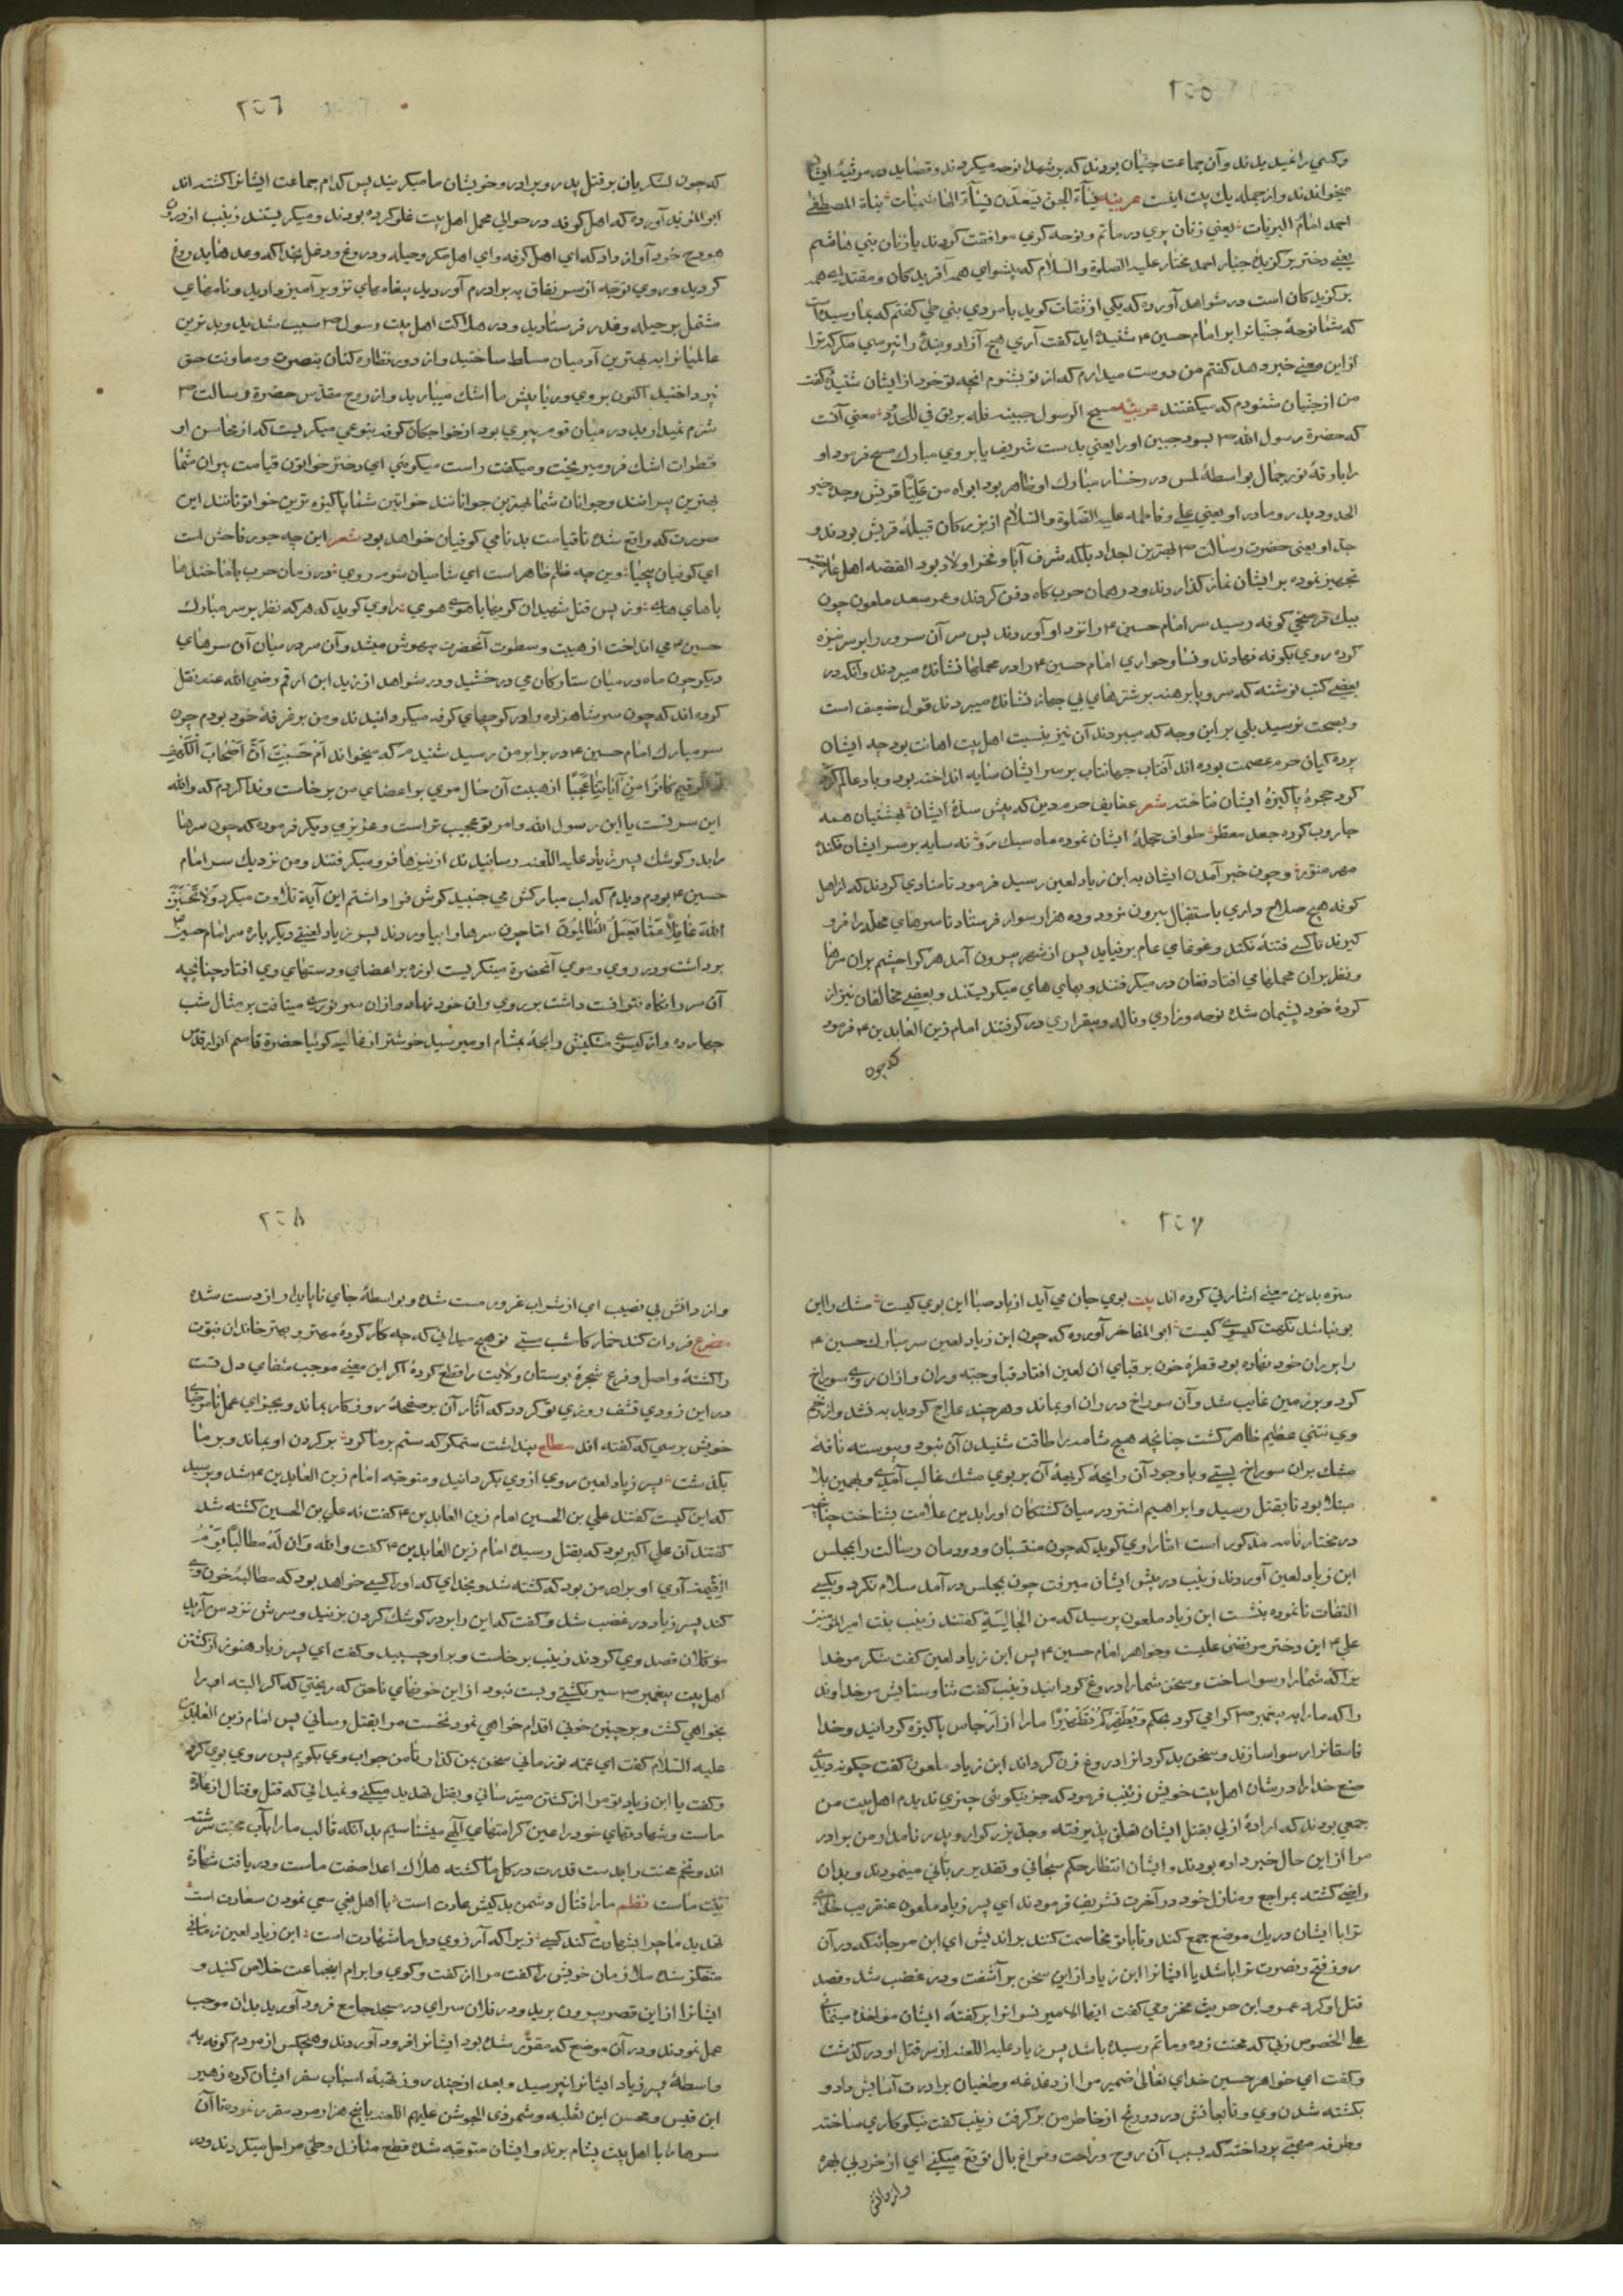 ٢٥٥
وکسی را نمیدیدند و آن جماعت جنیان بودند که بر شهدا نوحه میکردند و قصاید در مرثیه ایشان
میخواندند و از جمله یک بیت اینست عربیه نساء الجن یسعدن نساء الهاشمیات بنات المصطفی
احمد امام البریات یعنی زنان پری در ماتم و نوحه کری موافقت کردند با زنان بنی هاشم
یعنی دختر برکزیده جناب احمد مختار علیه الصلوة والسلام که پیشوای همه آفریدکان و مقتدای همه
برکزیدکان است در شواهد آورده که یکی از ثقات کوید با مردی بنی طی کفتم که بما رسیده است
که شما نوحه جنیانرا بر امام حسین ع شنیده اید کفت آری هیچ آزاد و بنده را نپرسی مکر که ترا
از این معنی خبر دهد کفتم من دوست میدارم که از تو بشنوم انچه تو خود از ایشان شنیده کفت
من از جنیان شنودم که میکفتند عربیه مسح الرسول جبینه فله بریق فی الخدود معنی آنست
که حضرة رسول الله ص بسود جبین او را یعنی بدست شریف یا بروی مبارک مسح فرمود او
را بارقهٔ نور جمال بواسطهٔ لمس در رخسار مبارک او ظاهر بود ابواه من علیا قریش وجده خیر
الجدود پدر و مادر او یعنی علی و فاطمه علیه الصلوة والسلام از بزرکان قبیلهٔ قریش بودند و
جد او یعنی حضرت رسالت ص بهترین اجداد بلکه شرف آبا و فخر اولاد بود القصه اهل غاضریه
تجهیز نموده بر ایشان نماز کذاردند و در همان حرب کاه دفن کردند و عمر سعد ملعون چون
بیک فرسخی کوفه رسید سر امام حسین ع را نزد او آوردند پس سر آن سرور را بر سر نیزه
کرده روی بکوفه نهادند و نسا و جواری امام حسین ع را در محملها نشانده میبردند و آنکه در
بعضی کتب نوشته که سر و پا برهنه بر شترهای بی جهاز نشانده میبردند قول ضعیف است
و بصحت نرسید بلی بر این وجه که میبردند آن نیز بنسبت اهل بیت اهانت بود چه ایشان
پرده کیان حرم عصمت بوده اند آفتاب جهانتاب بر سر ایشان سایه انداخته بود و باد عالم کرد
کرد حجرهٔ پاکیزهٔ ایشان نتاخته شعر عفایف حرم دین که پیش سدهٔ ایشان بهشتیان همه
جاروب کرده جعد معطر طواف حجلهٔ ایشان نموده ماه سبک رو نه سایه بر سر ایشان فکنده
مهر منور و چون خبر آمدن ایشان به ابن زیاد لعین رسید فرمود تا منادی کردند که از اهل
کوفه هیچ صلاح داری باستقبال بیرون نرود و ده هزار سوار فرستاد تا سرهای محله را فرو
کیرند تا کسی فتنه نکند و غوغای عام برنیاید پس از شهر بیرون آمد هر کرا چشم بران سرها
و نظر بران محملها می افتاد فغان در میکرفتند و بهای های میکریستند و بعضی مخالفان نیز از
کردهٔ خود پشیمان شده نوحه و زاری و ناله و بیقراری در کرفتند امام زین العابدین ع فرمود
که چون
٢٥٦
که چون لشکریان بر قتل پدر و برادر و خویشان ما میکریند پس کدام جماعت ایشانرا کشته اند
ابو المؤید آورده که اهل کوفه در حوالی محمل اهل بیت غلو کرده بودند و میکریستند زینب از درون
هودج خود آواز داد که ای اهل کوفه و ای اهل مکر و حیله و دروغ و دغل خدا که وعدها بدروغ
کردید و روی توجه از سر نفاق به برادرم آوردید پیغامهای تزویر آمیز دادید و نامهای
مشتمل بر حیله و غدر فرستادید و در هلاکت اهل بیت رسول ص سبب شدید و بدترین
عالمیانرا به بهترین آدمیان مسلط ساختید و از دور نظاره کنان بنصرت و معاونت حق
نپرداختید اکنون بروی و ریا پیش ما اشک میبارید و از روح مقدس حضرة رسالت ص
شرم نمیدارید در میان قوم پیری بود از خواجکان کوفه بنوعی میکریست که از محاسن او
قطرات اشک فرو میریخت و میکفت راست میکوئی ای دختر خواتون قیامت پیران شما
بهترین پیرانند و جوانان شما بهترین جوانانند خواتین شما پاکیزه ترین خواتونانند این
صورت که واقع شده تا قیامت بدنامی کوفیان خواهد بود شعر این چه جور فاحش است
ای کوفیان بیحیا وین چه ظلم ظاهر است ای شامیان شوم روی در زمان حرب باشاختند ما
باهای های وز پس قتل شهیدان کریها باهوی هوی راوی کوید که هر که نظر بر سر مبارک
حسین ع می انداخت از هیبت و سطوت آنحضرت بیهوش میشد و آن سر در میان آن سرهای
دیکر چون ماه در میان ستارکان می درخشید و در شواهد از زید ابن ارقم رضی الله عنه نقل
کرده اند که چون سر شاهزاده را در کوچهای کوفه میکردانیدند و من بر غرفهٔ خود بودم چون
سر مبارک امام حسین ع در برابر من رسید شنیدم که میخواند ام حسبت ان اصحاب الکهف
والرقیم کانوا من آیاتنا عجبا از هیبت آن حال موی بر اعضای من برخاست و ندا کردم که والله
این سر تست یا ابن رسول الله و امر تو عجیب تر است و عزیزی دیکر فرموده که چون سرها
را بدر کوشک پسر زیاد علیه اللعنه رسانیدند از نیزها فرو میکرفتند و من نزدیک سر امام
حسین ع بودم دیدم که لب مبارکش می جنبید کوش فرا داشتم این آیة تلاوت میکرد ولا تحسبن
الله غافلا عما یعمل الظالمون اما چون سرها را بیاوردند پسر زیاد لعنتی دیکر باره سر امام حسین ع
برداشت و در روی و موی آنحضرة مینکریست لرزه بر اعضای و دستهای وی افتاد چنانچه
آن سر را نکاه نتوانست داشت بر روی ران خود نهاد و ازان سر نوری میتافت بر مثال شب
چهارده و از کیسوی مشکینش رایحهٔ بمشام او میرسید خوشتر از غالیه کوئیا حضرة قاسم انوار قدس
٢٥٧
سره بدین معنی اشارتی کرده اند بیت بوی جان می آید از باد صبا این بوی کیست مشک را این
بو نباشد نکهت کیسوی کیست ابو المفاخر آورده که چون ابن زیاد لعین سر مبارک حسین ع
را بر ران خود نهاده بود قطرهٔ خون بر قبای ان لعین افتاد قبا و جبه و ران و ازان روی سوراخ
کرد و بر زمین غایب شد و آن سوراخ در ران او بماند و هر چند علاج کرد به نشد و از زخم
وی نتنی عظیم ظاهر کشت چنانچه هیچ شامه را طاقت شنیدن آن نبود و پیوسته نافهٔ
مشک بران سوراخ بستی و با وجود آن رایحهٔ کریههٔ آن بر بوی مشک غالب آمدی و بهمین بلا
مبتلا بود تا بقتل رسید و ابراهیم اشتر در میان کشتکان او را بدین علامت بشناخت چنانچه
در مختارنامه مذکور است اما راوی کوید که چون منتسبان و دودمان رسالت را بمجلس
ابن زیاد لعین آوردند زینب در پیش ایشان میرفت چون بمجلس در آمد سلام نکرد و بکسی
التفات نانموده بنشست ابن زیاد ملعون پرسید که من الجالسة کفتند زینب بنت امیر المؤمنین
علی ع این دختر مرتضی علیست و خواهر امام حسین ع پس ابن زیاد لعین کفت شکر مر خدا
یرا که شما را رسوا ساخت و سخن شما را دروغ کردانید زینب کفت ثنا و ستایش مر خداوند
را که ما را به پیغمبر ص کرامی کرد بحکم ویطهرکم تطهیرا ما را از ارجاس پاکیزه کردانید و خدا
فاسقانرا رسوا سازد و سخن بدکردانرا دروغ زن کرداند ابن زیاد ملعون کفت چکونه دیدی
صنع خدا را در شان اهل بیت خویش زینب فرمود که جز نیکوئی چیزی ندیدم اهل بیت من
جمعی بودند که ارادهٔ ازلی بقتل ایشان تعلق پذیرفته و جد بزرکوار و پدر نامدار من برادر
مرا از این حال خبر داده بودند و ایشان انتظار حکم سبحانی و تقدیر ربانی مینمودند و بدان
راضی کشته بمراجع و منازل خود در آخرت تشریف فرمودند ای پسر زیاد ملعون عنقریب خدای
ترا با ایشان در یک موضع جمع کند و تا با تو مخاصمت کنند بر اندیش ای ابن مرجانه که در آن
روز فتح و نصرت ترا باشد یا ایشانرا ابن زیاد از این سخن بر آشفت و در غضب شد و قصد
قتل او کرد عمرو ابن حریث مخزومی کفت ایها الامیر نسوانرا بر کفتهٔ ایشان مواخذه مینمائی
علی الخصوص زنی که محنت زده و ماتم رسیده باشد پسر زیاد علیه اللعنه از سر قتل او در کذشت
و کفت ای خواهر حسین خدای تعالی ضمیر مرا از دغدغه و طغیان برادرت آسایش داد و
بکشته شدن وی و تابعانش درد و رنج از خاطر من بر کرفت زینب کفت نیکو کاری ساختهٔ
و طرفه مهمی پرداختهٔ که بسبب آن روح و راحت و فراغ بال توقع میکنی ای از خرد بی بهره
و از دانش
٢٥٨
و از دانش بی نصیب ای از شراب غرور مست شده و بواسطهٔ جای ناپایدار از دست شده
مصرع فردات کند خمار کامشب مستی تو هیچ میدانی که چه کار کردهٔ مهتر و بهتر خاندان نبوت
را کشتهٔ و اصل و فرع شجرهٔ بوستان ولایت را قطع کردهٔ اکر این معنی موجب شفای دل تست
در این زودی تشف روزی تو کردد که آثار آن بر صفحهٔ روزکار بماند و بجزای عمل ناصوابی
خویش برسی که کفته اند مطلع پنداشت ستمکر که ستم بر ما کرد بر کردن او بماند و بر ما
بکذشت پسر زیاد لعین روی از وی بکردانید و متوجه امام زین العابدین ع شد و پرسید
که این کیست کفتند علی بن الحسین امام زین العابدین ع کفت نه علی بن الحسین کشته شد
کفتند آن علی اکبر بود که بقتل رسیده امام زین العابدین ع کفت والله وان له مطالبا یوم
القیمة آری او برادر من بود که کشته شد و بخدای که او را کسی خواهد بود که مطالبهٔ خون وی
کند پسر زیاد در غضب شد و کفت که این را بر در کوشک کردن بزنید و سرش نزد من آرید
موکلان قصد وی کردند زینب برخاست و بر او چسبید و کفت ای پسر زیاد هنوز از کشتن
اهل بیت پیغمبر ص سیر نکشتی و بست نبود از این خونهای ناحق که ریختی که اکر البته او را
بخواهی کشت و بر چنین خونی اقدام خواهی نمود نخست مرا بقتل رسانی پس امام زین العابدین
علیه السلام کفت ای عمه توز مانی سخن بمن کذار تا من جواب وی بکویم پس روی بوی کرد
و کفت یا ابن زیاد تو مرا از کشتن میترسانی و بقتل تهدید میکنی و نمیدانی که قتل و قتال از عادة
ماست و شهادتهای خود را عین کرامتهای الهی میشناسیم بدانکه قالب ما را بآب محنت سرشته
اند و تخم محنت را بدست قدرت در کل ما کشته هلاک اعدا صفت ماست و دریافت شهادة
نیت ماست نظم ما را قتال دشمن بدکیش عادت است با اهل بغی سعی نمودن سعادت است
تهدید ما چرا بشهادت کند کسی زیرا که آرزوی دل ما شهادت است ابن زیاد لعین زمانی
متفکر شده ملازمان خویش را کفت مرا از کفت و کوی و ابرام اینجماعت خلاص کنید و
ایشانرا از این قصر بیرون برید و در فلان سرای در مسجد جامع فرود آورید بدان موجب
عمل نمودند و در آن موضع که مقرر شده بود ایشانرا فرود آوردند و هیچکس از مردم کوفه به
واسطهٔ پسر زیاد ایشانرا نپرسید و بعد از چند روز تهیهٔ اسباب سفر ایشان کرده زهیر
ابن قیس و محسن ابن ثعلبه و شمر ذی الجوشن علیهم اللعنه با پنج هزار مرد مقرر نموده تا آن
سرها را با اهل بیت بشام برند و ایشان متوجه شده قطع منازل و طی مراحل میکردند و در